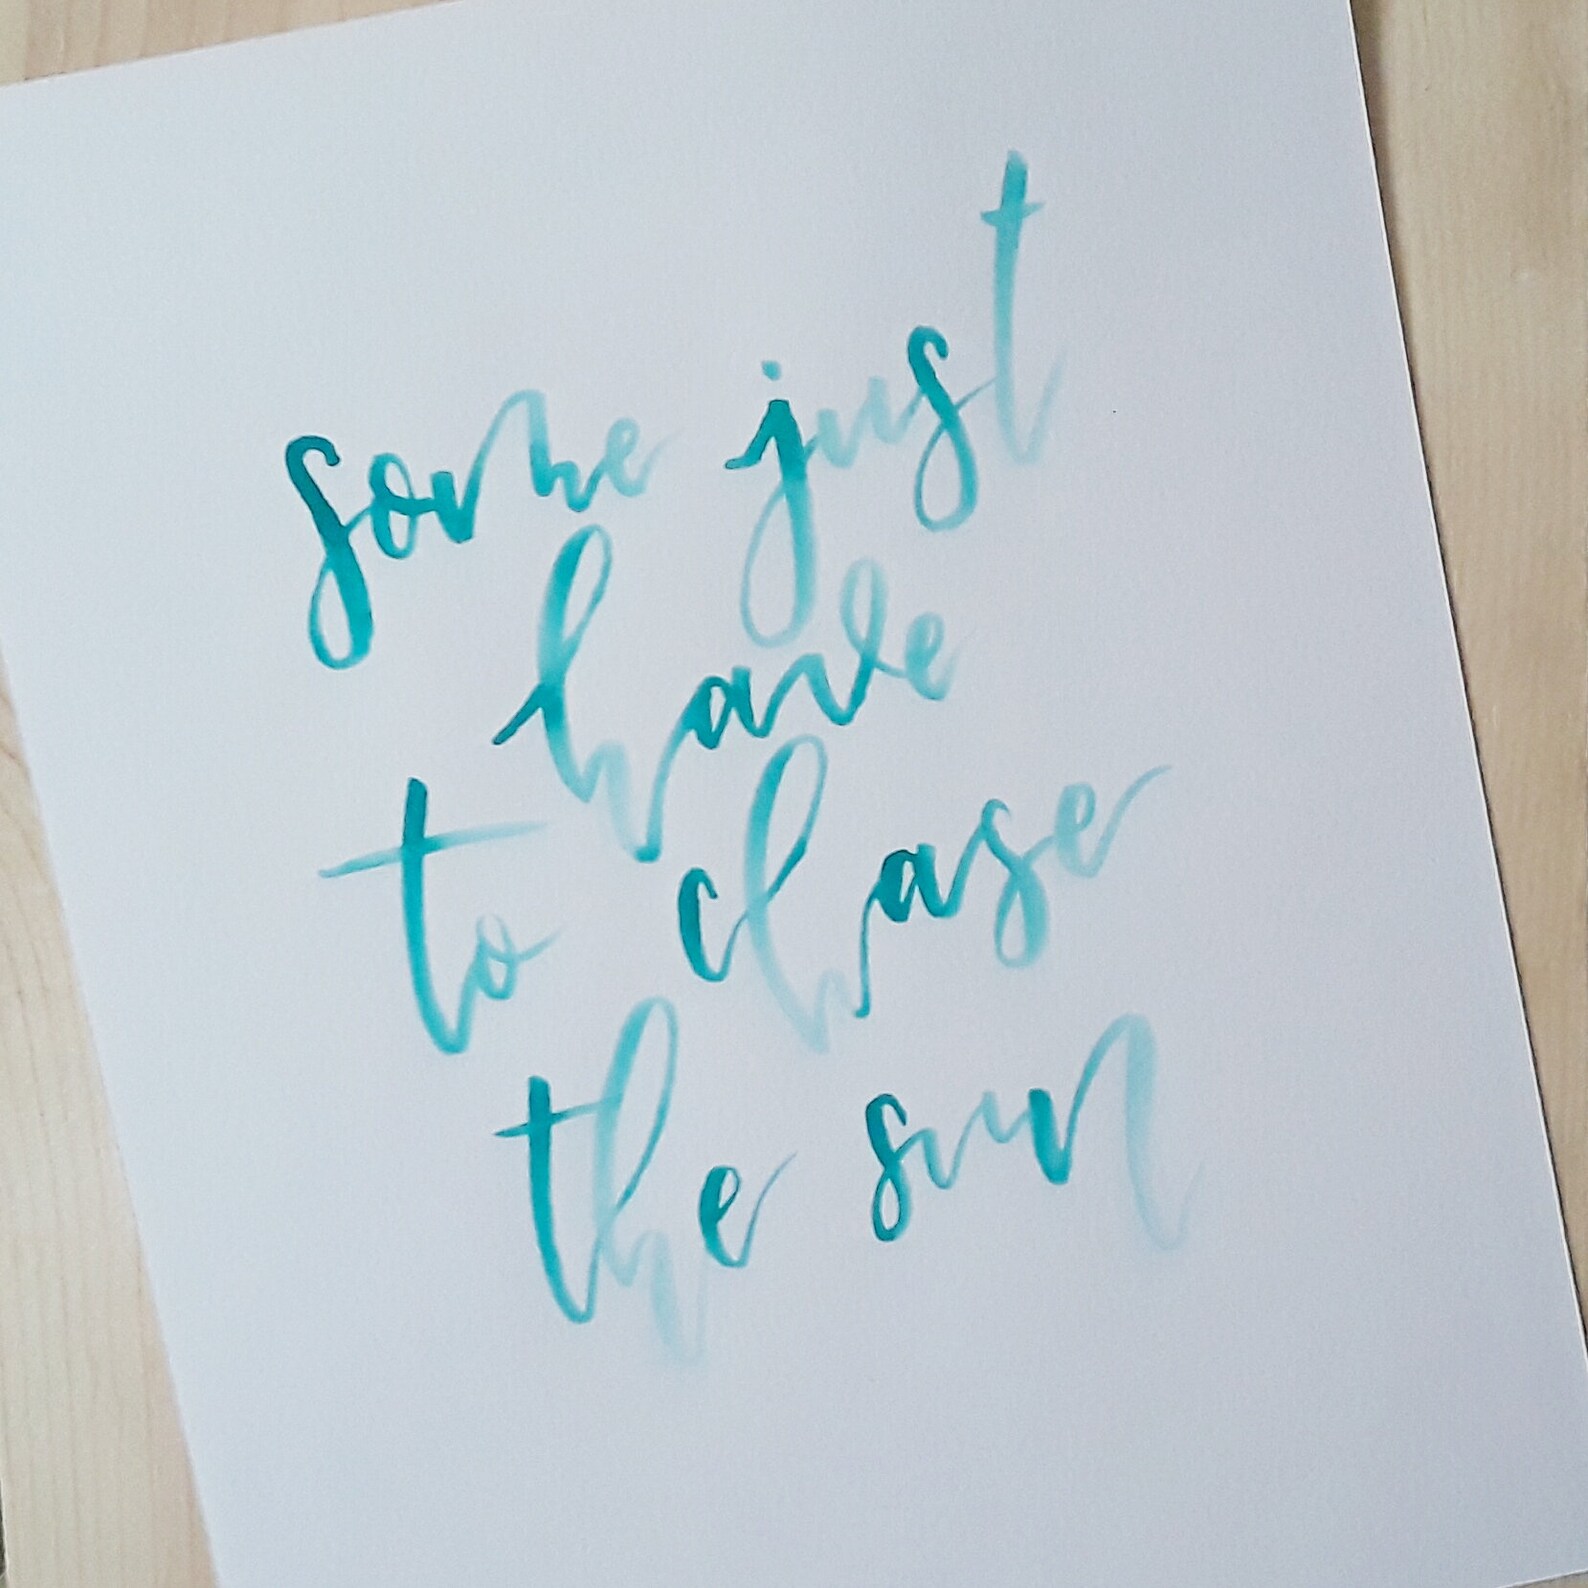 some just
have
to chase
the sun